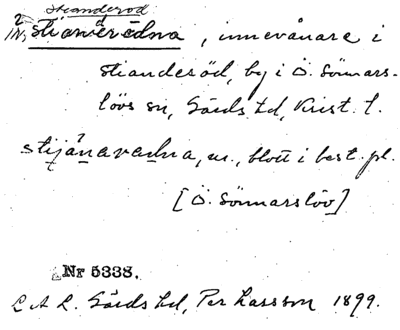 Standeröd
stianderödna, innevånare i
Standeröd, by i Ö. Sönnars-
lövs sn, Gärds hd, Krist. l.
stijánaradna, m., blott i best. pl.
[Ö. Sönnarslöv]
Nr 5338.
L A L. Gärds hd, Per Larsson 1899.